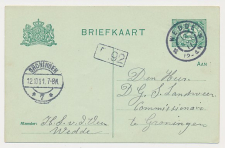 BRIEFKAART
WEDDE
GRONINGEN
12.10.11. 7-8N.
F 92
Aan
Den Heer
D. G. S. Landweer
Commissionair
te Groningen
Afzender: H. S. v. d. Veen
Wedde